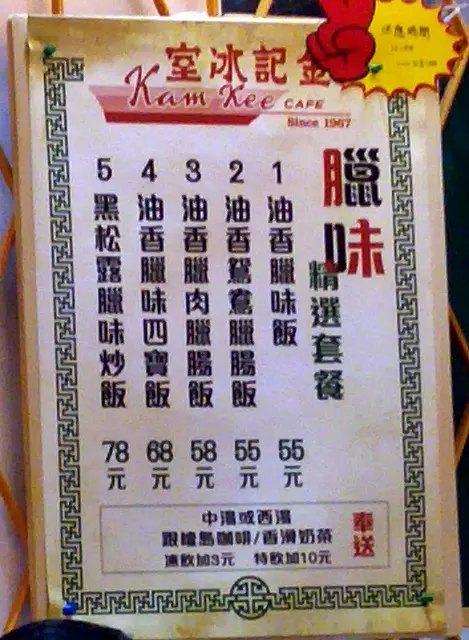 金記冰室
Kam Kee CAFE
Since 1967
臘味
精選套餐
1 油香臘味飯 55元
2 油香鴛鴦臘腸飯 55元
3 油香臘肉臘腸飯 58元
4 油香臘味四寶飯 68元
5 黑松露臘味炒飯 78元
奉送
中湯或西湯
跟檀島咖啡/香滑奶茶
凍飲加3元 特飲加10元